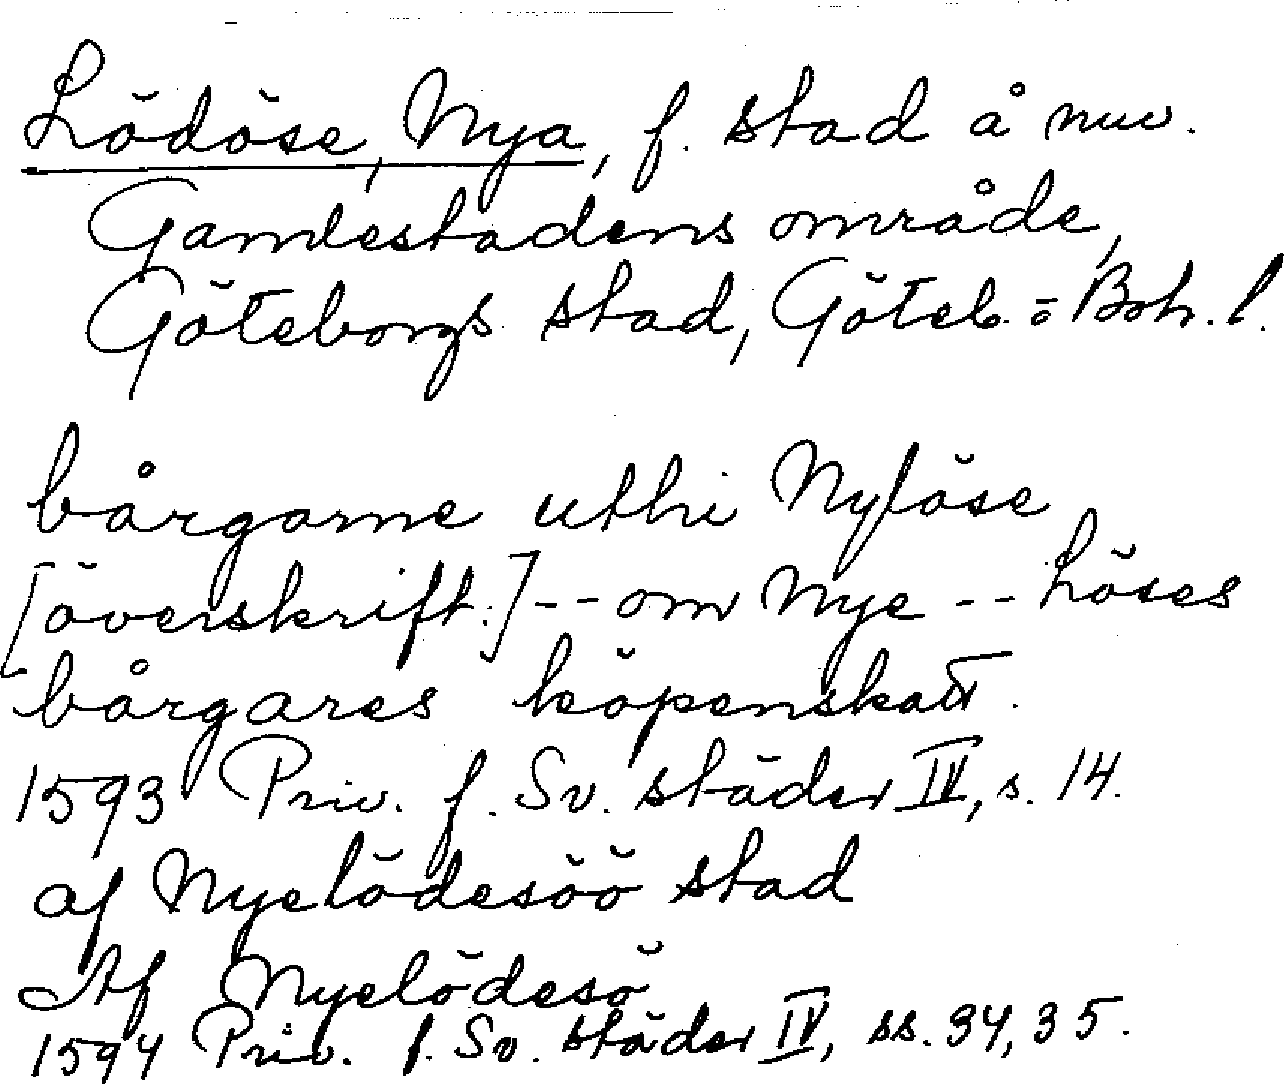 Lödöse, Nya, f. stad å nuv.
Gamlestadens område,
Göteborgs stad, Göteb. o. Boh. l.
bårgarne uthi Nylöse
[överskrift.] -- om Nye -- Löses
bårgares köpenskatt.
1593 Priv. f. Sv. städer IV, s. 14.
af Nyelödesöö stad
Af Nyelödesö
1594 Priv. f. Sv. städer IV, ss. 34, 35.